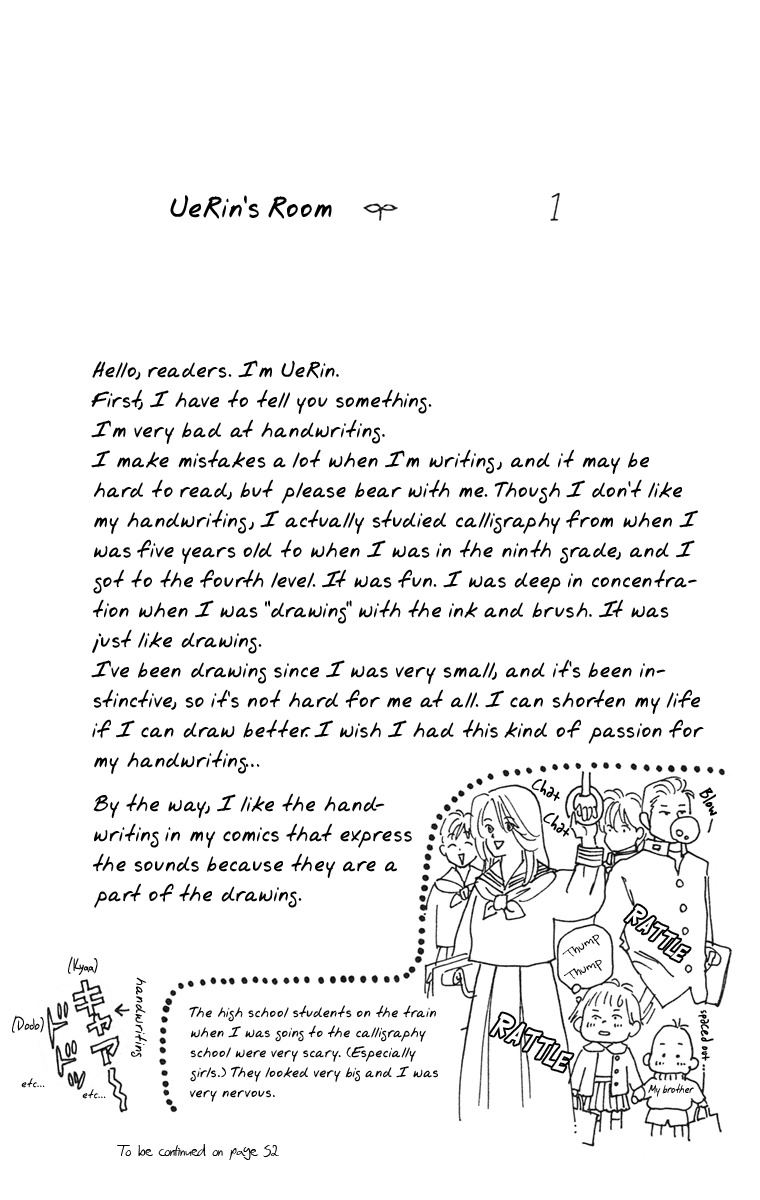 UeRin's Room
1
Hello, readers. I'm UeRin.
First, I have to tell you something.
I'm very bad at handwriting.
I make mistakes a lot when I'm writing, and it may be
hard to read, but please bear with me. Though I don't like
my handwriting, I actually studied calligraphy from when I
was five years old to when I was in the ninth grade, and I
got to the fourth level. It was fun. I was deep in concentra-
tion when I was "drawing" with the ink and brush. It was
just like drawing.
I've been drawing since I was very small, and it's been in-
stinctive, so it's not hard for me at all. I can shorten my life
if I can draw better. I wish I had this kind of passion for
my handwriting...
By the way, I like the hand-
writing in my comics that express
the sounds because they are a
part of the drawing.
Chat
Chat
Blow
RATTLE
Thump
Thump
RATTLE
spaced out...
My brother
(Kyaa)
キャアー
handwriting
(Dodo)
ドド
etc...
etc...
The high school students on the train
when I was going to the calligraphy
school were very scary. (Especially
girls.) They looked very big and I was
very nervous.
To be continued on page 52